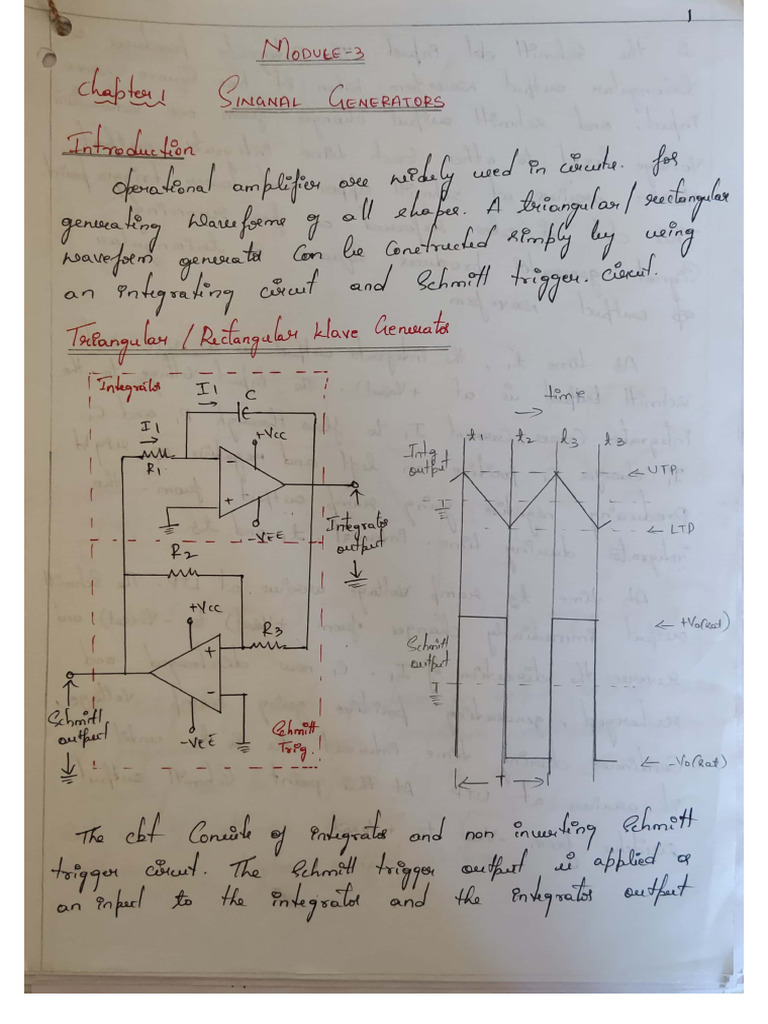 1
MODULE-3
Chapter 1 SINGNAL GENERATORS
Introduction
Operational amplifier are widely used in circuits. for
generating waveforms of all shapes. A triangular/rectangular
waveform generator can be constructed simply by using
an integrating circuit and Schmitt trigger. circuit.
Triangular / Rectangular Wave Generator
Integrator
I1
C
I1
R1
+Vcc
-
+
-VEE
Integrator
output
R2
+Vcc
R3
+
-
-VEE
Schmitt
output
Schmitt
Trig.
time
t1 t2 t3 t3
Intg
output
UTP
LTP
+Vo(sat)
Schmitt
output
-Vo(sat)
T
The ckt Consists of integrator and non inverting Schmitt
trigger circuit. The Schmitt trigger output is applied as
an input to the integrator and the integrator output